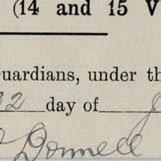 (14 and 15 V
uardians, under th
22 day of J
Donnell